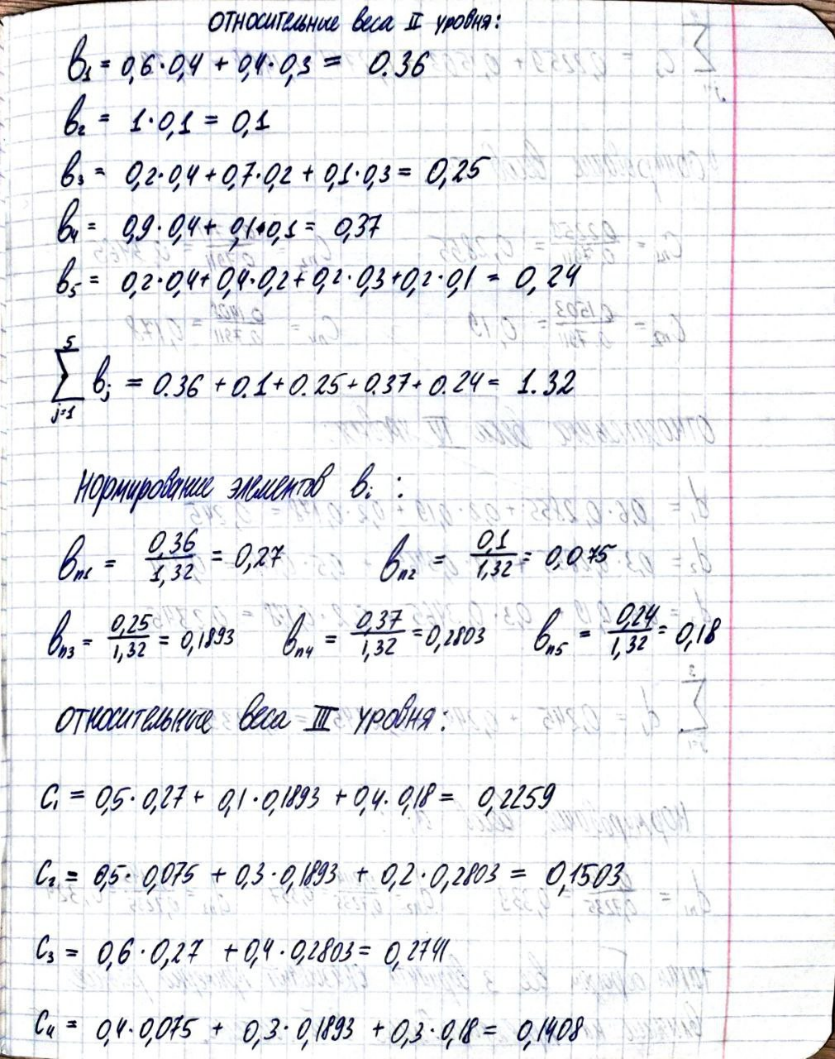 Относительные веса II уровня:
b₁ = 0,6·0,4 + 0,4·0,3 = 0.36
b₂ = 1·0,1 = 0,1
b₃ = 0,2·0,4 + 0,7·0,2 + 0,1·0,3 = 0,25
b₄ = 0,9·0,4 + 0,1·0,1 = 0,37
b₅ = 0,2·0,4 + 0,4·0,2 + 0,2·0,3 + 0,2·0,1 = 0,24
5
∑ bⱼ = 0.36 + 0.1 + 0.25 + 0.37 + 0.24 = 1.32
j=1
Нормирование элементов bᵢ:
bₙ₁ = 0,36/1,32 = 0,27 bₙ₂ = 0,1/1,32 = 0,075
bₙ₃ = 0,25/1,32 = 0,1893 bₙ₄ = 0,37/1,32 = 0,2803 bₙ₅ = 0,24/1,32 = 0,18
Относительные веса III уровня:
C₁ = 0,5·0,27 + 0,1·0,1893 + 0,4·0,18 = 0,2259
C₂ = 0,5·0,075 + 0,3·0,1893 + 0,2·0,2803 = 0,1503
C₃ = 0,6·0,27 + 0,4·0,2803 = 0,2741
C₄ = 0,4·0,075 + 0,3·0,1893 + 0,3·0,18 = 0,1408